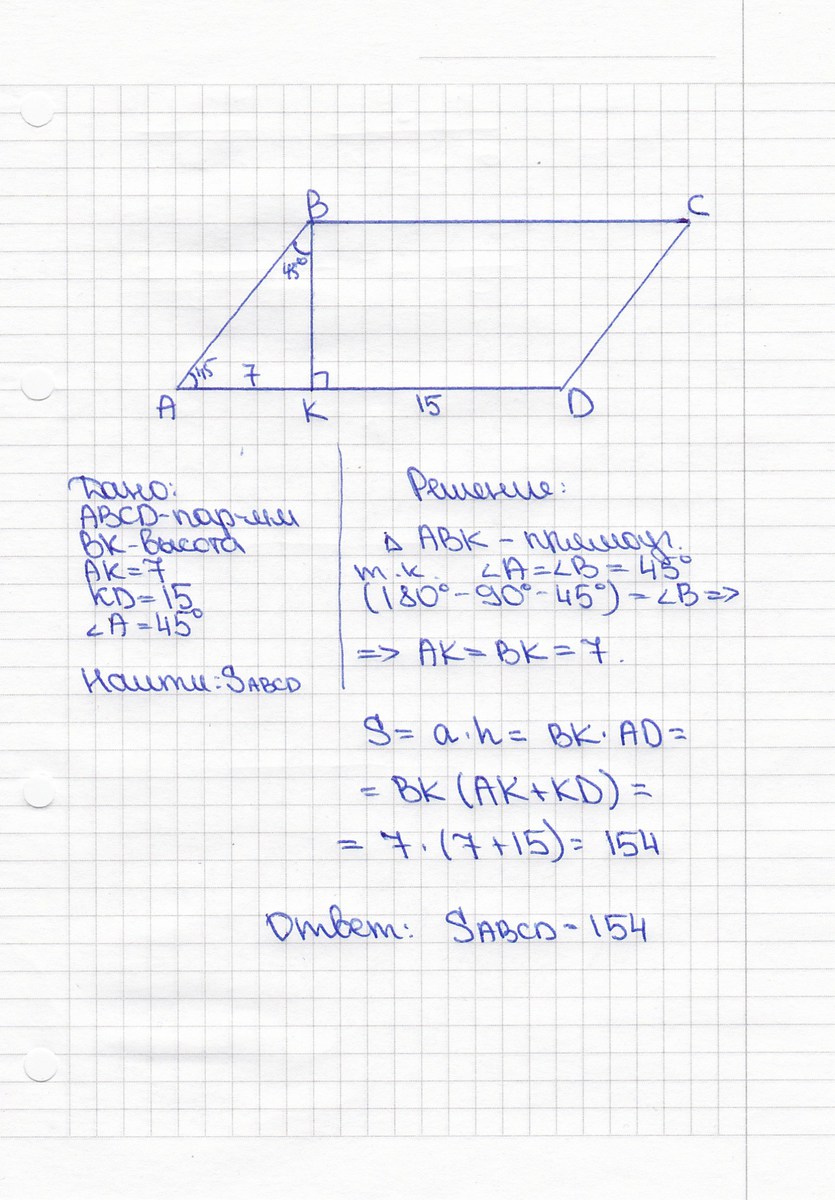 B
C
45°
45
7
A
K
15
D
Дано:
ABCD-пар-мм
BK-высота
AK=7
KD=15
∠A=45°
Найти:SABCD
Решение:
△ ABK - прямоуг.
т.к. ∠A=∠B=45°
(180°-90°-45°)=∠B=>
=> AK=BK=7.
S= a·h= BK·AD=
= BK (AK+KD)=
= 7·(7+15)= 154
Ответ: SABCD=154